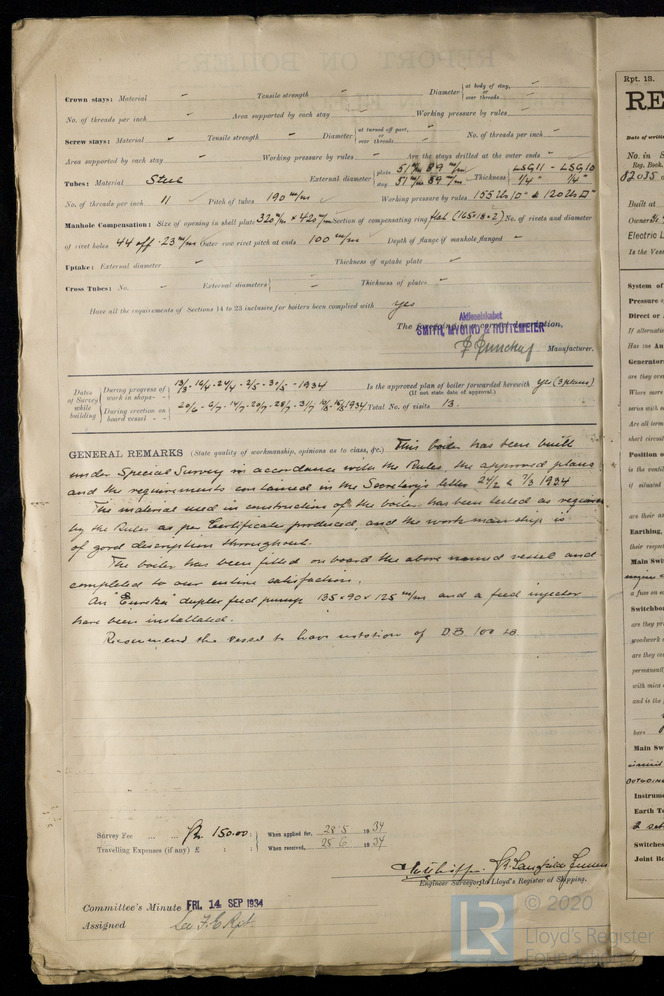 Crown stays: Material Tensile strength Diameter { at body of stay, or over threads
No. of threads per inch Area supported by each stay Working pressure by rules
Screw stays: Material Tensile strength Diameter { at turned off part, or over threads No. of threads per inch
Area supported by each stay Working pressure by rules Are the stays drilled at the outer ends
Tubes: Material Steel External diameter { plain 51 m/m 89 m/m stay 51 m/m 89 m/m Thickness { LSG 11 - LSG 10 1/4" 1/4"
No. of threads per inch 11 Pitch of tubes 190 m/m Working pressure by rules 155 lbs □" & 120 lbs □"
Manhole Compensation: Size of opening in shell plate 320 m/m × 420 m/m Section of compensating ring flat (165×18×2) No. of rivets and diameter
of rivet holes 44 off · 23 m/m Outer row rivet pitch at ends 100 m/m Depth of flange if manhole flanged
Uptake: External diameter Thickness of uptake plate
Cross Tubes: No. External diameters { Thickness of plates
Have all the requirements of Sections 14 to 23 inclusive for boilers been complied with yes
Aktieselskabet
The foregoing is a correct description,
SMITH, MYGIND & HÜTTEMEIER
Manufacturer.
Dates of Survey while building { During progress of work in shops - - 13/3 - 16/4 - 24/4 - 2/5 - 30/5 - 1934 Is the approved plan of boiler forwarded herewith yes (3 plans)
(If not state date of approval.)
During erection on board vessel - - 20/6 - 2/7 14/7 - 20/7 - 28/7 - 31/7 10/8 - 15/8 1934 Total No. of visits 13.
GENERAL REMARKS (State quality of workmanship, opinions as to class, &c.) This boiler has been built
under Special Survey in accordance with the Rules, the approved plans
and the requirements contained in the Secretary's letter 24/2 & 7/3 1934
The material used in construction of the boiler has been tested as required
by the Rules as per Certificate produced, and the workmanship is
of good description throughout.
The boiler has been fitted on board the above named vessel and
completed to our entire satisfaction.
An "Eureka" duplex feed pump 135×90×125 m/m and a feed injector
have been installated.
Recommend the vessel to have notation of D.B. 100 lb.
Survey Fee ... ... Kr. 150.00 : When applied for, 28·5 1934
Travelling Expenses (if any) £ : : When received, 25·6 1934
Engineer Surveyor to Lloyd's Register of Shipping.
Committee's Minute FRI. 14 SEP 1934
Assigned See F.E. Rpt
Rpt. 13.
RE
Date of writi
No. in S
Reg. Book.
82035 o
Built at
Owners
Electric L
Is the Vess
System of
Pressure
Direct or
If alternatin
Has the Au
Generator
are they over
Where more
series with
Are all term
short circuit
Position o
is the ventil
if situated
are their ax
Earthing,
their respect
Main Swi
a fuse on e
Switchboa
are they pr
woodwork
are they co
permanently
with mica
and is the
bars
Main Sw
Instrum
Earth Te
2 set
Switches
Joint Bo
LR
© 2020
Lloyd's Register
Foundation